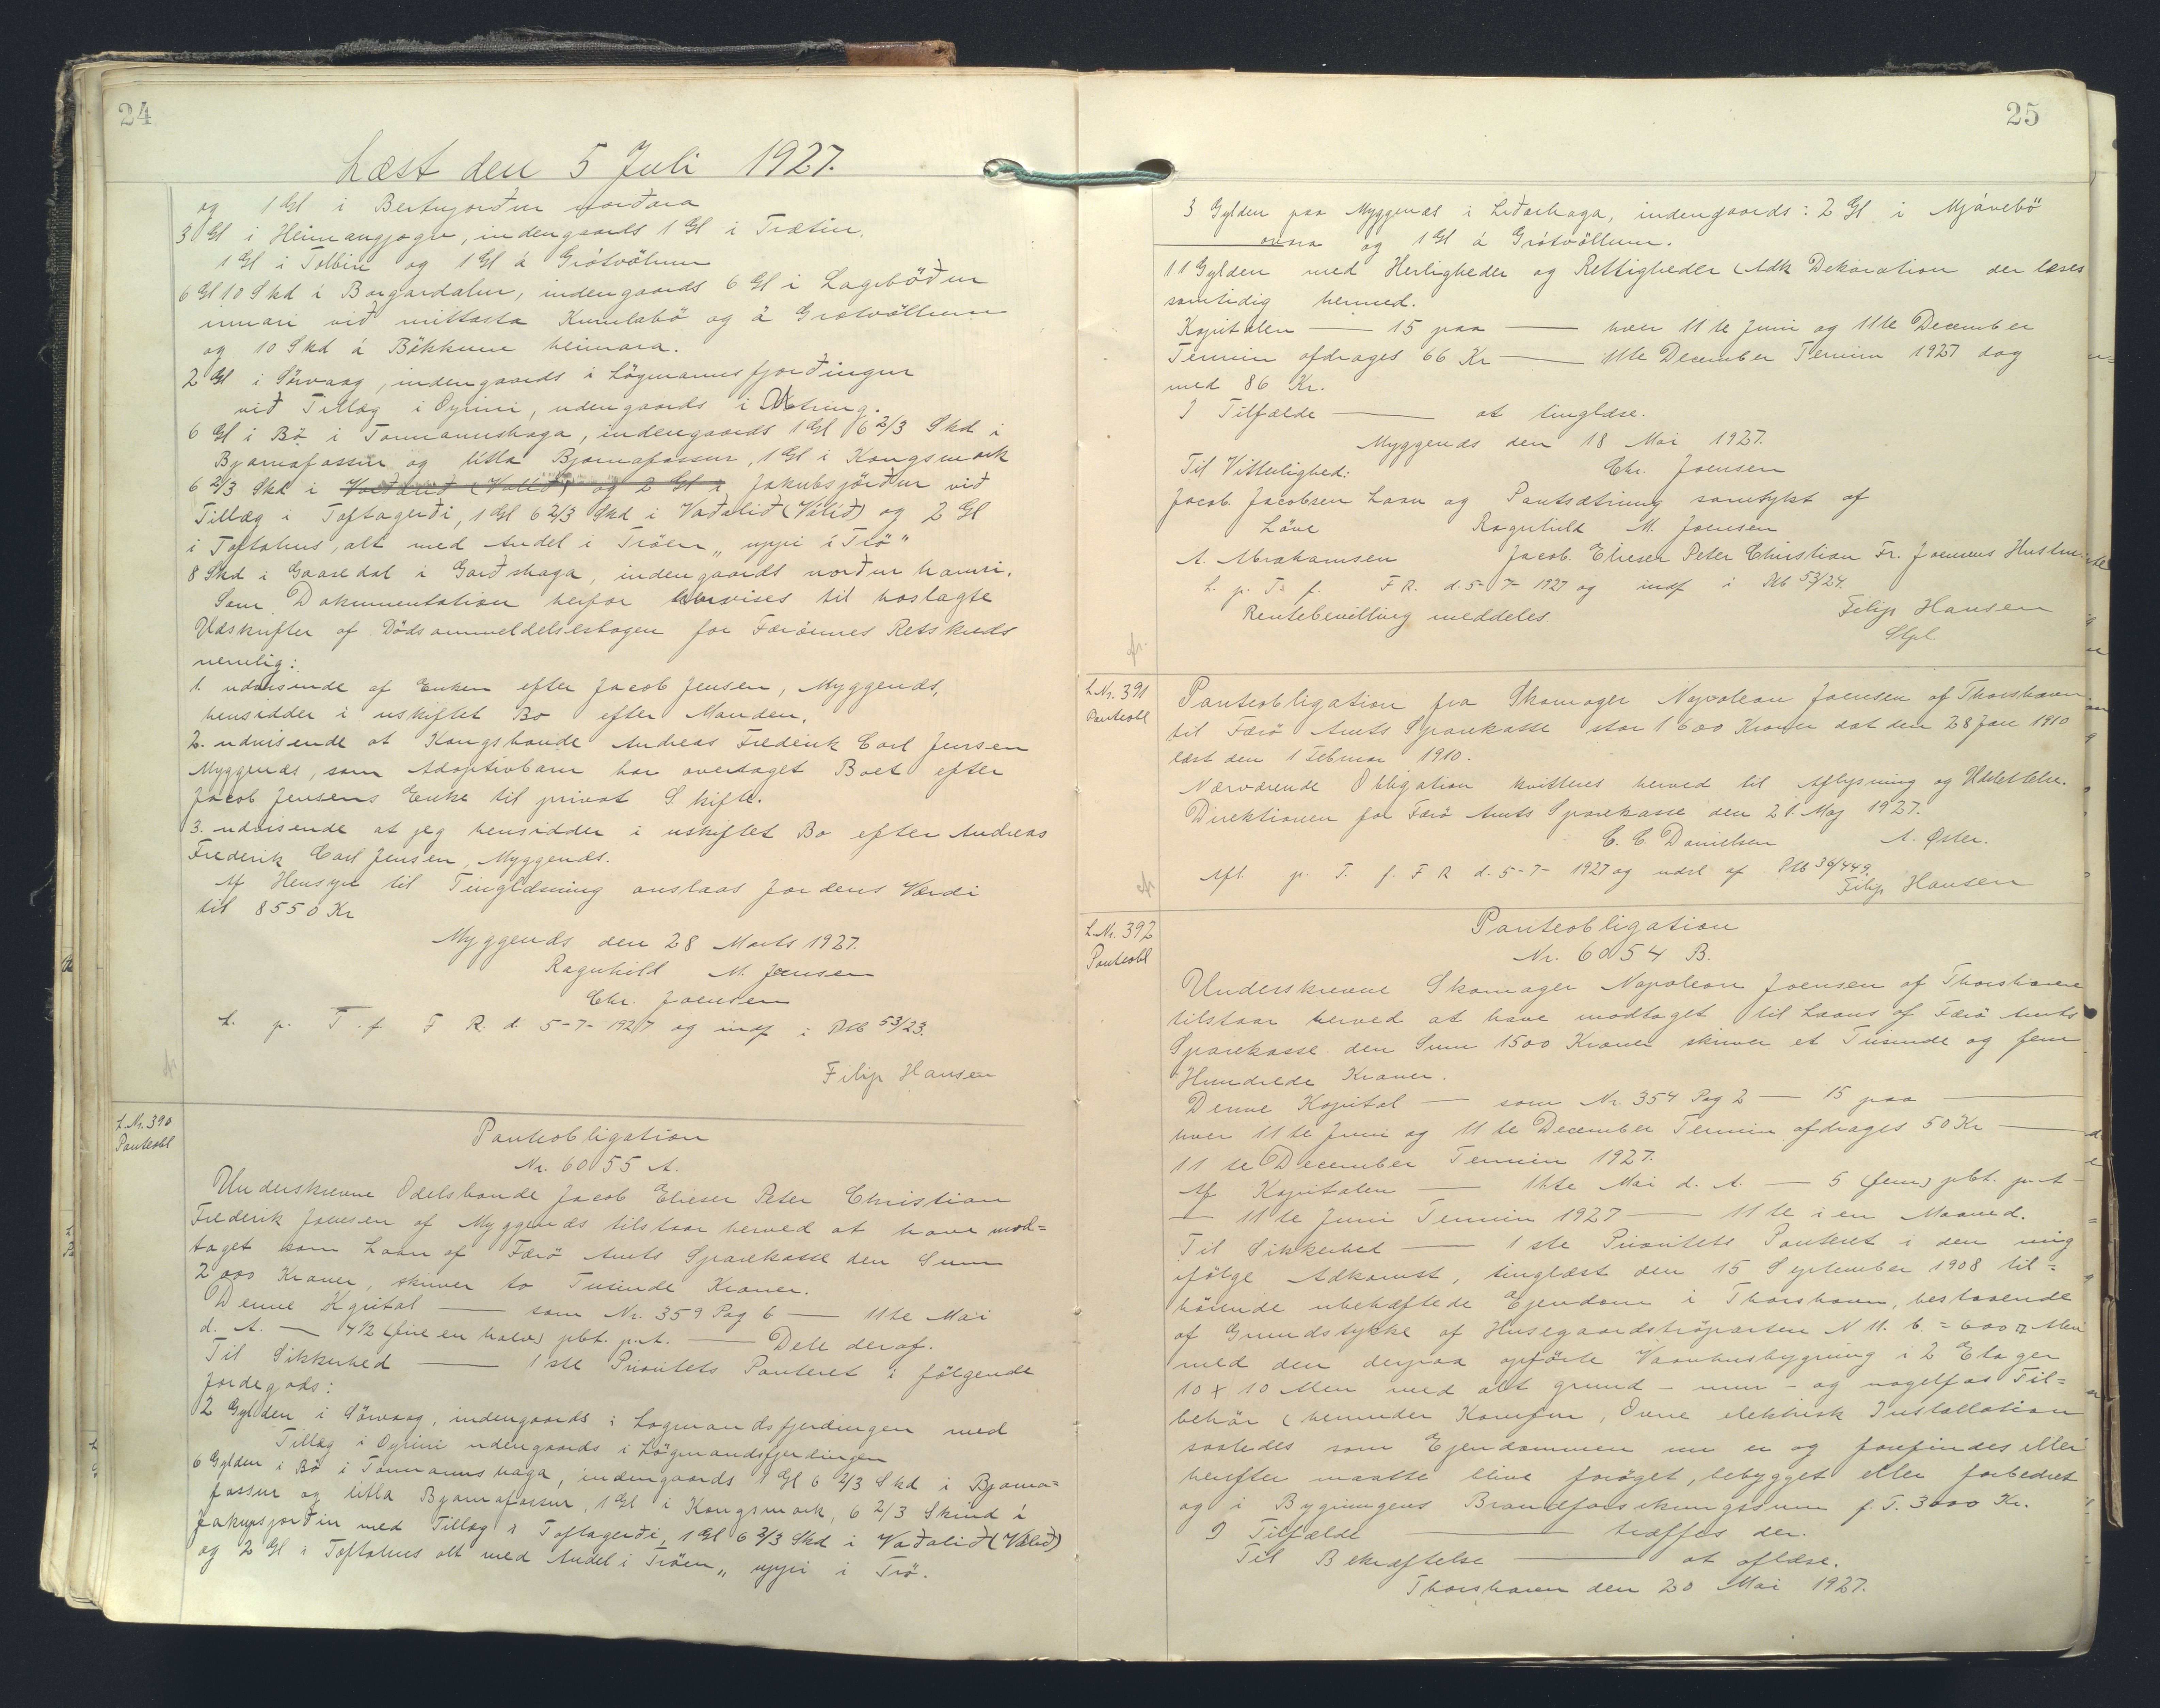 24
Læst den 5 Juli 1927.
og 1 Gl i norðara
3 Gl i Heimangjógv, indengaards 1 Gl i Trætin,
1 Gl i Tolbin og 1 Gl á Grótvöllum
6 Gl 10 Skd i Borgardalur, indengaards 6 Gl i Lagabøður
innari við mittasta Kumlabø og á Grótvöllum
og 10 Skd á Bökkum heimara.
2 Gl i Sørvaag, indengaards i Lögmannsfjorðingur
við Tillæg i Oyrini, udengaards i
6 Gl i Bø i Tormannshaga, indengaards 1 Gl 6 2/3 Skd i
Bjarnafossur og litla Bjarnafossur, 1 Gl i Kongsmork
6 2/3 Skd i Vaðalið (Valið) og 2 Gl i Jakubsjörður við
Tillæg i Toftagerði, 1 Gl 6 2/3 Skd i Vaðalið (Válið) og 2 Gl
i Toftahus, alt med Andel i Tröen „uppi i Trö"
8 Skd i Gaasedal i Garðshaga, indengaards norður hamri.
Som Dokumentation herfor henvises til hoslagte
Udskrifter af Dødsanmeldelsesbogen for Færöernes Retskreds
nemlig:
1. udvisende at Enken efter Jacob Jensen, Myggenæs,
hensidder i uskiftet Bo efter Manden.
2. udvisende at Kongsbonde Andreas Frederik Carl Jensen
Myggenæs, som Adoptivbarn har overtaget Boet efter
Jacob Jensens Enke til privat Skifte.
3. udvisende at jeg hensidder i uskiftet Bo efter Andreas
Frederik Carl Jensen, Myggenæs.
Af Hensyn til Tinglæsning anslaas Jordens Værdi
til 8550 Kr
Myggenæs den 28 Marts 1927.
Ragnhild M. Jensen
Chr. Joensen
L. p. T. f. F R. d. 5-7-1927 og indf i Ptb 53/23.
Filip Hansen
L.Nr. 390
Panteobl
Panteobligation
Nr. 6055 A.
Underskrevne Odelsbonde Jacob Elieser Peter Christian
Frederik Joensen af Myggenæs tilstaar herved at have mod=
taget som Laan af Færö Amts Sparekasse den Sum
2000 Kroner, skriver to Tusinde Kroner.
Denne Kapital — som Nr. 359 Pag 6 — 11te Mai
d. A. — 4½ (fire en halv) pbt. p. A. — Dele deraf.
Til Sikkerhed — 1ste Prioritets Panteret i følgende
Jordegods:
2 Gylden i Sörvaag, indengaards i Lagmandsfjerdingen med
Tillæg i Oyrini udengaards i Lögmandsfjerdingen
6 Gylden i Bø i Tormannshaga, indengaards 1 Gl 6 2/3 Skd i Bjarna=
fossur og litla Bjarnafossur, 1 Gl i Kongsmork, 6 2/3 Skind i
Jakupsjorðin med Tillæg i Toftagerði, 1 Gl 6 2/3 Skd i Vaðalið (Válið)
og 2 Gl i Toftahus alt med Andel i Tröen „uppi i Trö.
25
3 Gylden paa Myggenæs i Liðarhaga, indengaards: 2 Gl i Mjávebö
ovara og 1 Gl á Grótvöllum.
11 Gylden med Herligheder og Rettigheder (Adk Deklaration der læses
samtidig hermed.
Kapitalen — 15 paa — hver 11te Juni og 11te December
Termin afdrages 66 Kr — 11te December Termin 1927 dog
med 86 Kr.
I Tilfælde — at tinglæse.
Myggenæs den 18 Mai 1927.
Til Vitterlighed: Chr. Joensen
Jacob Jacobsen Laan og Pantsætning samtykt af
Löve Ragnhild M. Joensen
A. Abrahamsen Jacob Elieser Peter Christian Fr. Joensens Hustru
L. p. T. f. F R. d. 5-7-1927 og indf i Ptb 53/24.
Rentebevilling meddeles Filip Hansen
L.Nr. 391
Panteobl
Panteobligation fra Skomager Napoleon Joensen af Thorshavn
til Færö Amts Sparekasse stor 1600 Kroner dat den 28 Jan 1910
læst den 1 Februar 1910.
Nærværende Obligation kvitteres herved til Aflysning og Udslettelse.
Direktionen for Færö Amts Sparekasse den 21. Maj 1927.
C. C. Danielsen A. Øster.
Afl. p. T. f. F R d. 5-7-1927 og udsl af Ptb 36/449.
Filip Hansen
L.Nr. 392
Panteobl
Panteobligation
Nr. 6054 B.
Underskrevne Skomager Napoleon Joensen af Thorshavn
tilstaar herved at have modtaget til Laans af Færö Amts
Sparekasse den Sum 1500 Kroner skriver et Tusinde og fem
Hundrede Kroner.
Denne Kapital — som Nr. 354 Pag 2 — 15 paa —
hver 11te Juni og 11te December Termin afdrages 50 Kr —
11te December Termin 1927.
Af Kapitalen — 11te Mai d. A. — 5 (fem) pbt. p. A
— 11te Juni Termin 1927 — 11te i en Maaned.
Til Sikkerhed — 1ste Prioritets Panteret i den mig
ifölge Adkomst, tinglæst den 15 September 1908 til=
hörende ubehæftede Ejendom i Thorshavn, bestaaende
af Grundstykke af Husegaardströparten N 11. b. = 600 □ Alen
med den derpaa opförte Vaanhusbygning i 2 Etager
10 x 10 Alen med alt grund- mur- og nagelfas Til=
behör (herunder Komfur, Ovne elektrisk Installation
saaledes som Ejendommen nu er og forefindes eller
herefter maatte blive foröget, bebygget eller forbedret
og i Bygningens Brandforsikringssum f. T. 3000 Kr.
I Tilfælde — træffes der.
Til Bekræftelse — at aflæse.
Thorshavn den 20 Mai 1927.